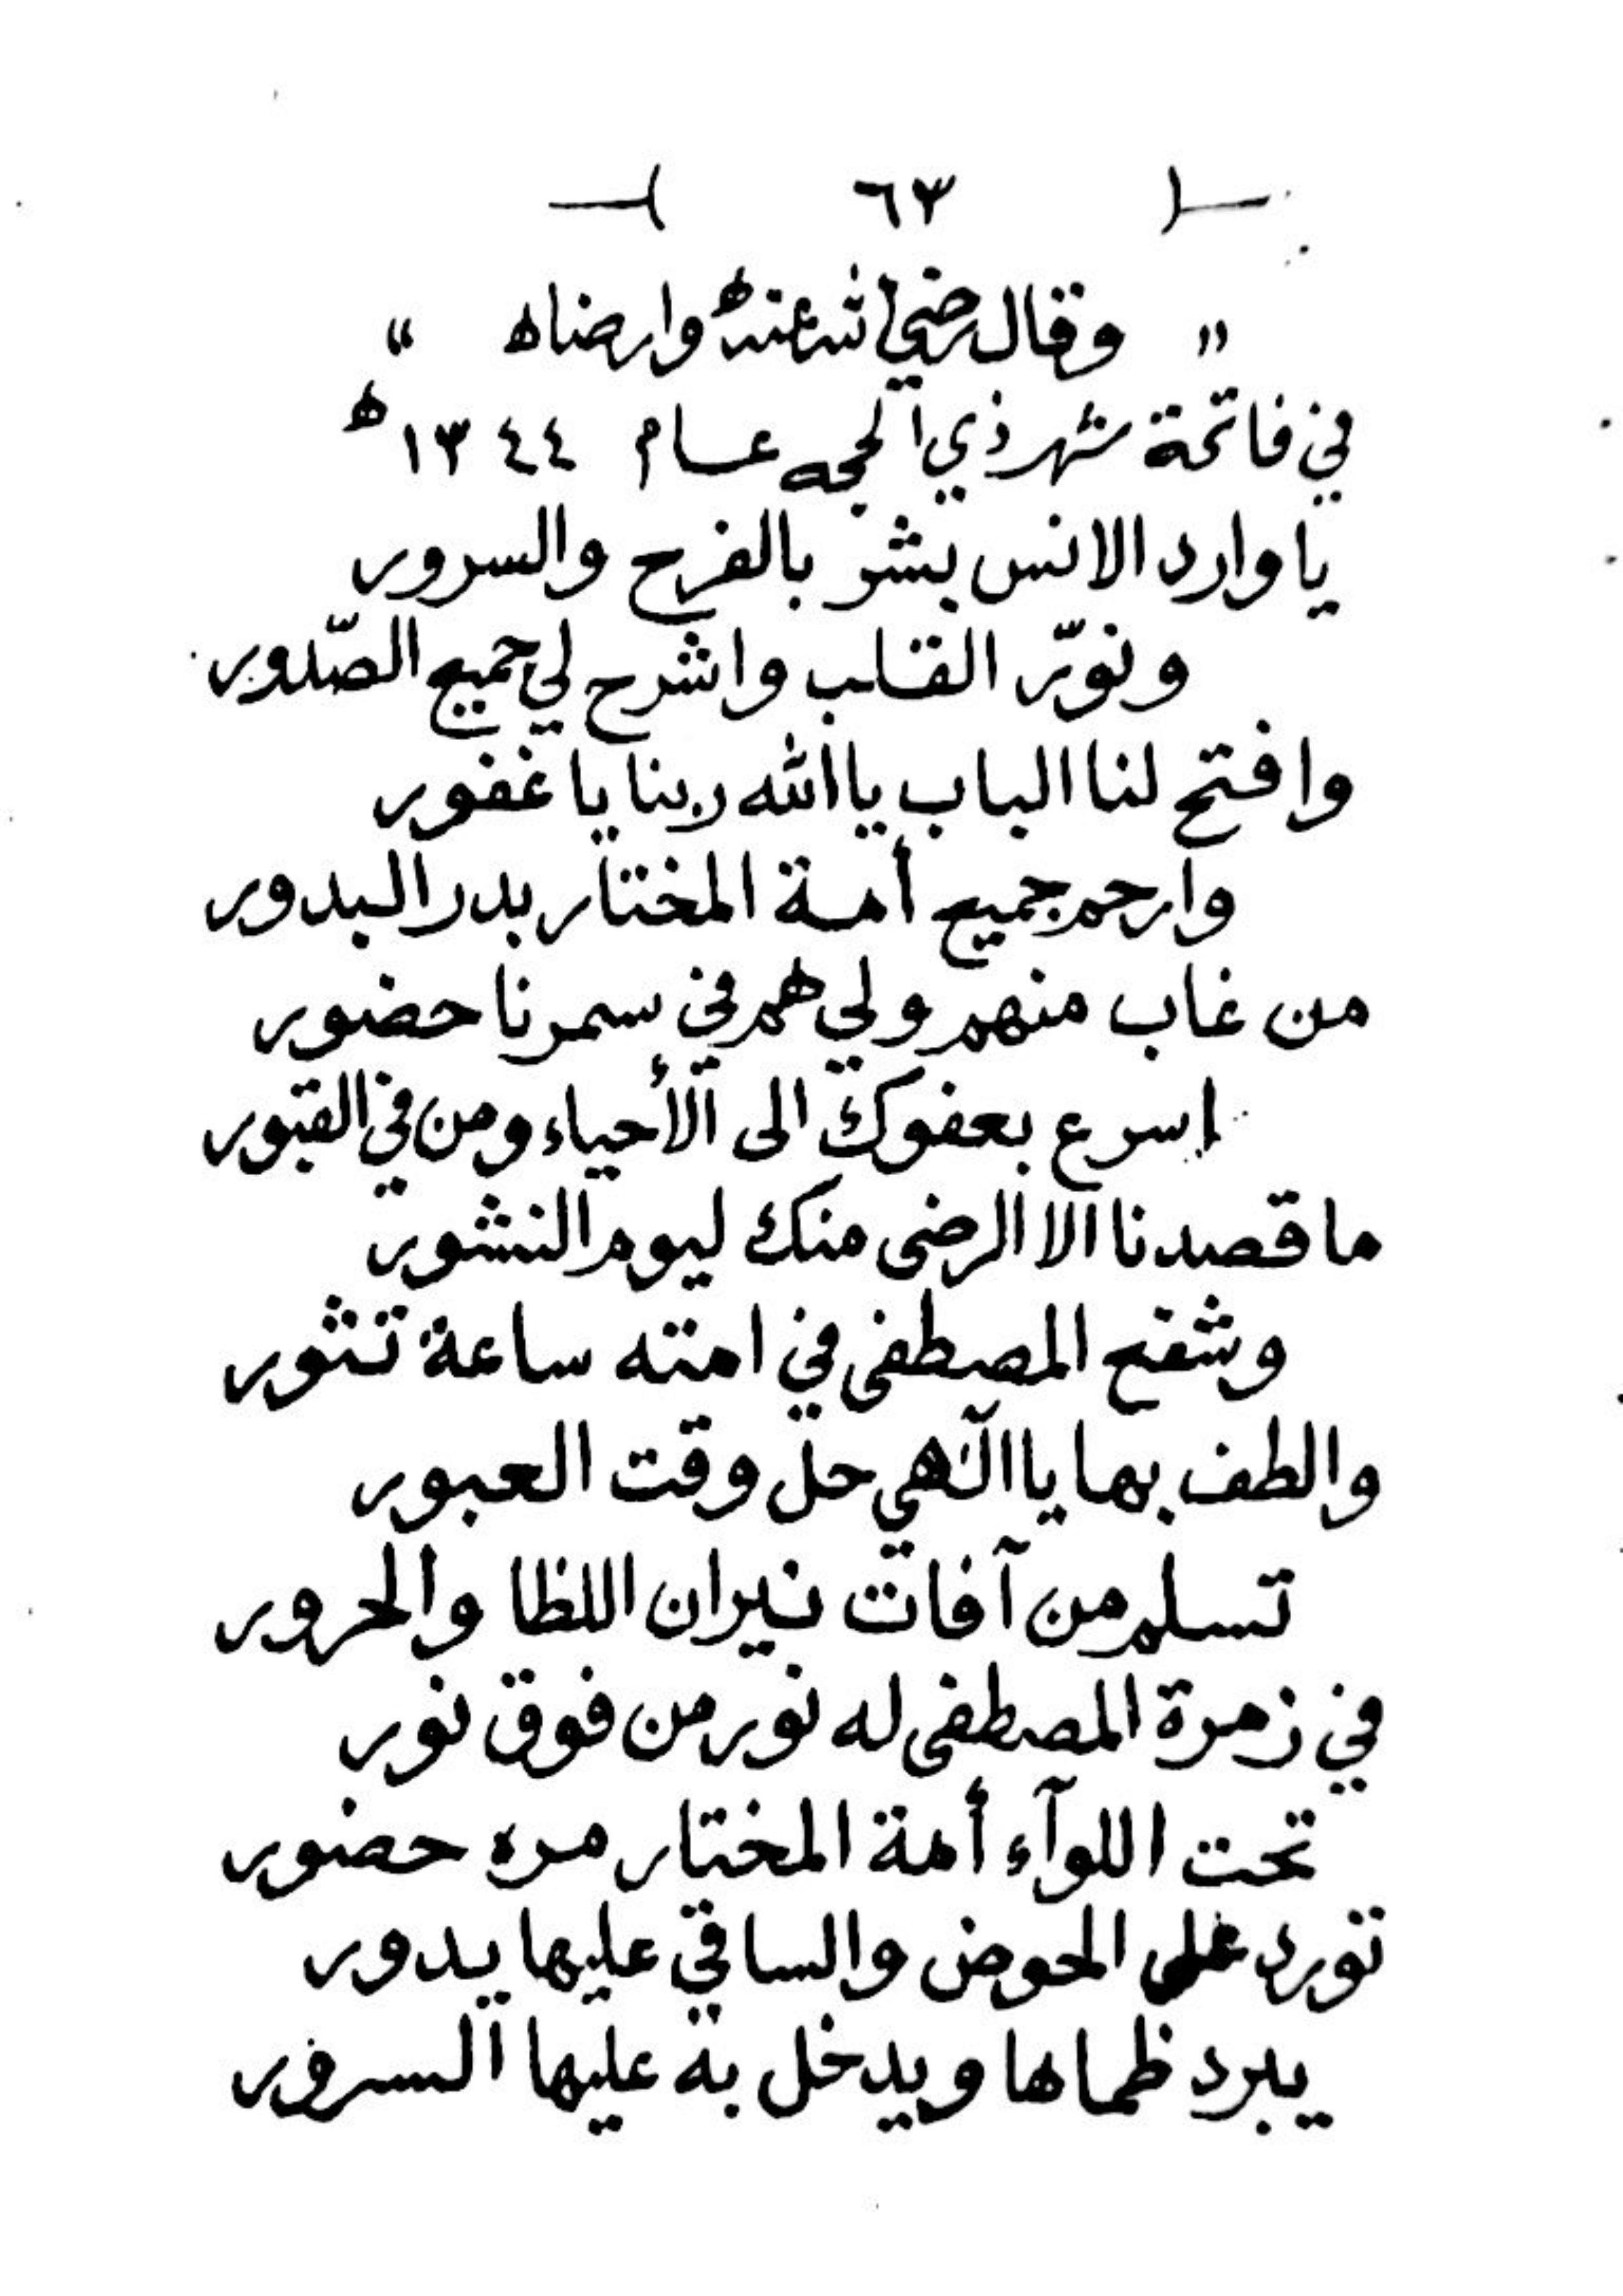 ٦٣
" وقال رضي الله عنه وارضاه "
في فاتحة شهر ذي الحجه عام ١٣٤٤ ه
يا وارد الانس بشر بالفرح والسرور
ونوّر القلب واشرح لي جميع الصّدور
وافتح لنا الباب يا الله ربنا يا غفور
وارحم جميع أمة المختار بدر البدور
من غاب منهم ولي هم في سمرنا حضور
اسرع بعفوك الى الأحياء ومن في القبور
ما قصدنا الا الرضى منك ليوم النشور
وشفع المصطفى في امته ساعة تثور
والطف بها يا الٓهي حل وقت العبور
تسلم من آفات نيران اللظا والحرور
في زمرة المصطفى له نور من فوق نور
تحت اللوآء أمة المختار مره حضور
تورد على الحوض والساقي عليها يدور
يبرد ظماها ويدخل به عليها السرور